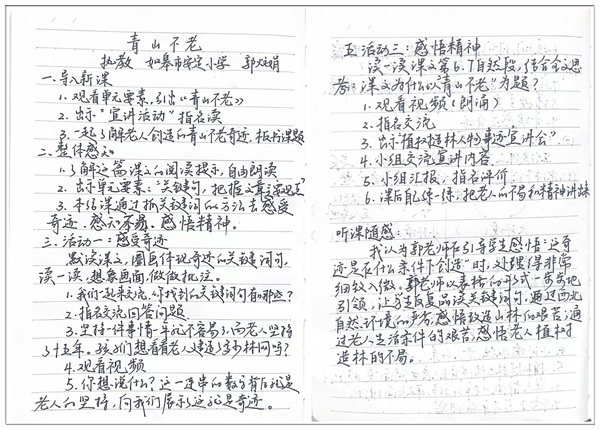 青山不老
执教 如皋市安定小学 郭
一.导入新课
1.观看单元要素,引出《青山不老》
2.出示"宣讲活动"指名读
3.一起了解老人创造的青山不老奇迹,板书课题
二、整体感知
1.了解这篇课文的阅读提示,自由朗读
2.出示单元要素:"关键句,把握文章主要观点"
3.本结课通过抓关键词句的方法去感受
奇迹.感知不易.感悟精神。
三.活动一:感受奇迹
默读课文,圈画体现奇迹的关键词句,
读一读,想象画面,做做批注。
1.我们一起来交流,你找到的关键词句有哪些?
2.指名交流回答问题
3.坚持一件事情一年就不容易,而老人坚持
了十五年。孩子们想看看老人建造了多少林网吗?
4.观看视频
5.你想说什么?这一连串的数字背后就是
老人的坚持,向我们展示了这就是奇迹。
五 活动三:感悟精神
读一读课文第6.7自然段,结合全文思
考:课文为什么以"青山不老"为题?
1.观看视频(朗诵)
2.指名交流
3.出示植树造林人物事迹宣讲会"
4.小组交流宣讲内容
5.小组汇报,指名评价
6.课后自己练一练,把老人的不易和精神讲出来
听课随感:
我认为郭老师在引导学生感悟"这奇
迹是在什么条件下创造"时,处理得非常
细致入微。郭老师以表格的形式一步步地
引领,让学生反复品读关键词句,通过西北
自然环境的严苛,感悟改造山林的艰苦;通
过老人生活条件的艰苦,感悟老人植树
造林的不易。